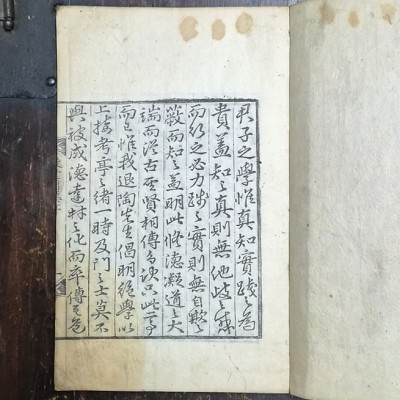 君子之學惟真知實踐之爲
貴盖知之真則無他歧之惑
而行之必力踐之實則無自欺之
蔽而知之益明此修德凝道之大
端而從古聖賢相傳之訣只此二事
而已惟我退陶先生倡明絶學以
上接考亭之緒一時及門之士莫不
與被成德達材之化而卒傳其